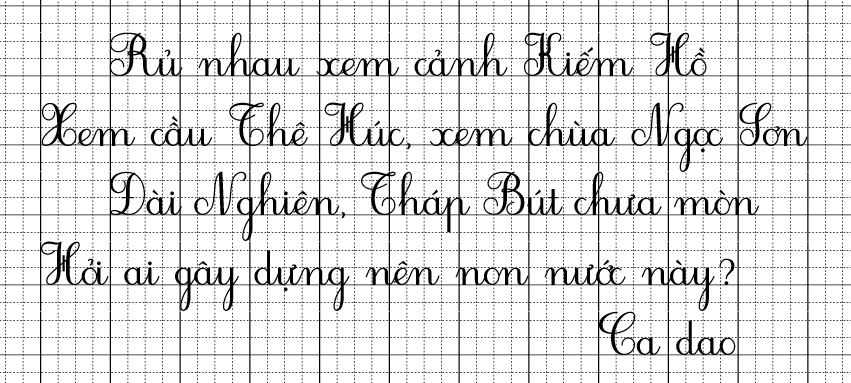 Rủ nhau xem cảnh Kiếm Hồ
Xem cầu Thê Húc, xem chùa Ngọc Sơn
Đài Nghiên, Tháp Bút chưa mòn
Hỏi ai gây dựng nên non nước này?
Ca dao